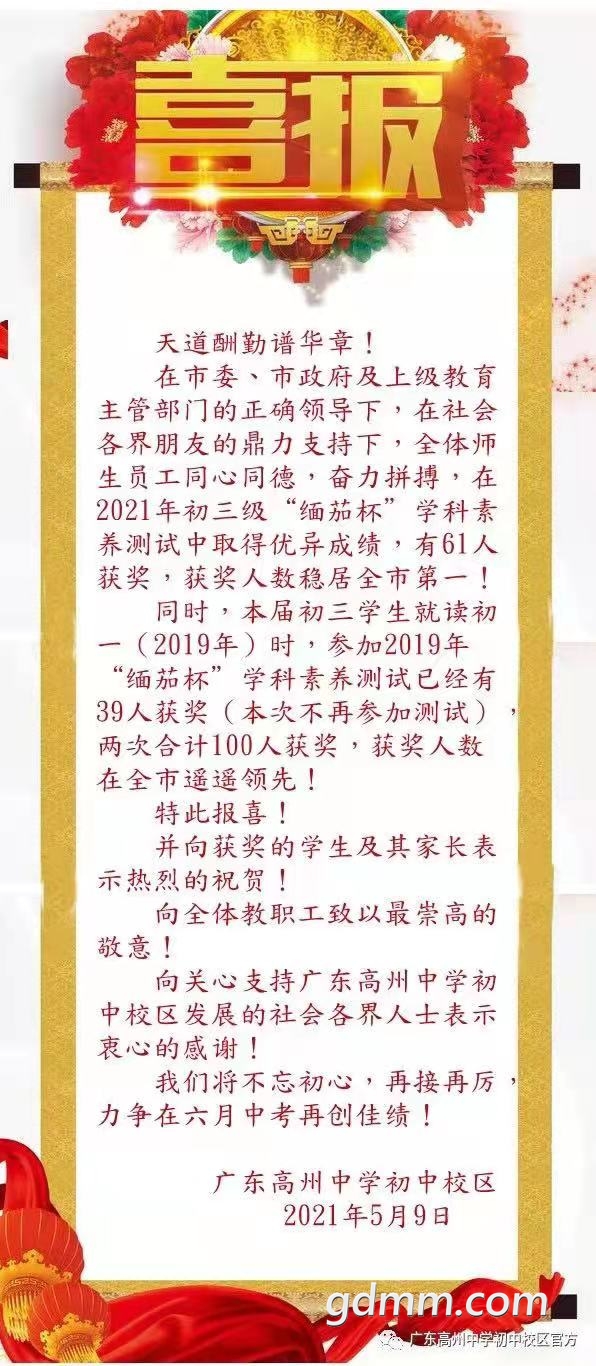 喜报
天道酬勤谱华章！
在市委、市政府及上级教育
主管部门的正确领导下，在社会
各界朋友的鼎力支持下，全体师
生员工同心同德，奋力拼搏，在
2021年初三级“缅茄杯”学科素
养测试中取得优异成绩，有61人
获奖，获奖人数稳居全市第一！
同时，本届初三学生就读初
一（2019年）时，参加2019年
“缅茄杯”学科素养测试已经有
39人获奖（本次不再参加测试），
两次合计100人获奖，获奖人数
在全市遥遥领先！
特此报喜！
并向获奖的学生及其家长表
示热烈的祝贺！
向全体教职工致以最崇高的
敬意！
向关心支持广东高州中学初
中校区发展的社会各界人士表示
衷心的感谢！
我们将不忘初心，再接再厉，
力争在六月中考再创佳绩！
广东高州中学初中校区
2021年5月9日
gdmm.com
广东高州中学初中校区官方